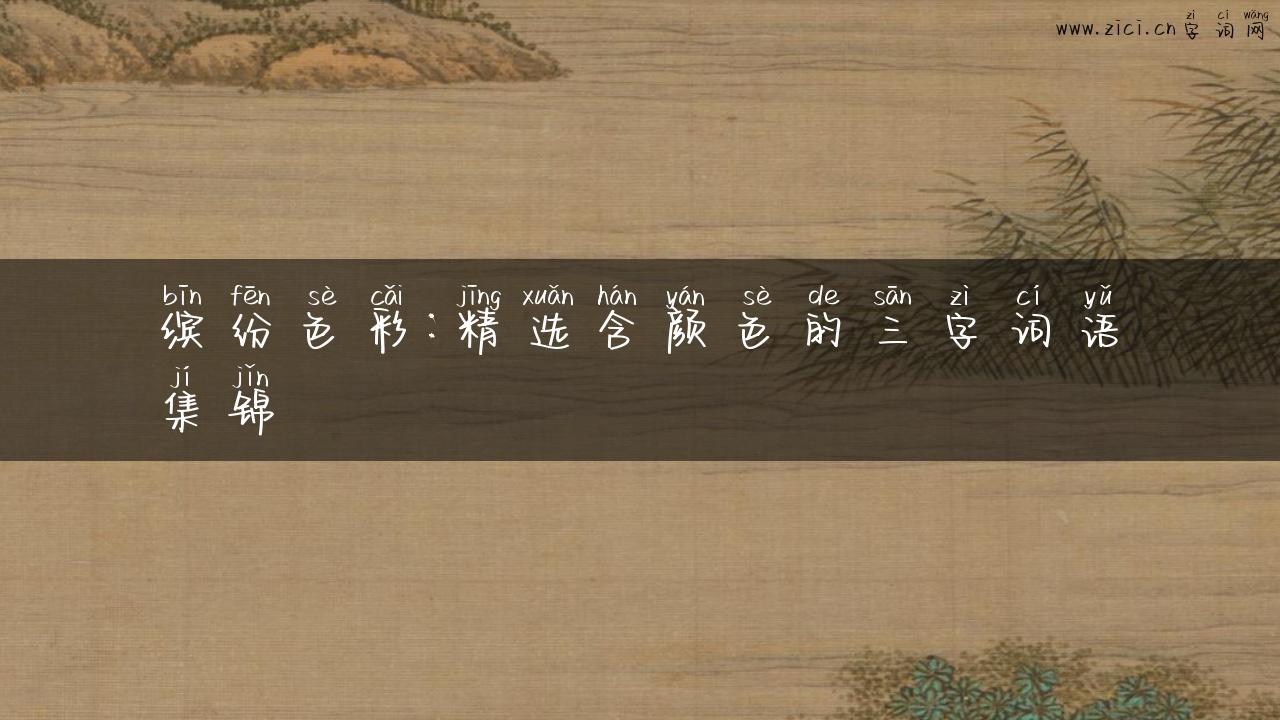 zì cí wǎng
www.zici.cn字词网
bīn fēn sè cǎi jīng xuǎn hán yán sè de sān zì cí yǔ
缤纷色彩:精选含颜色的三字词语
jí jǐn
集锦